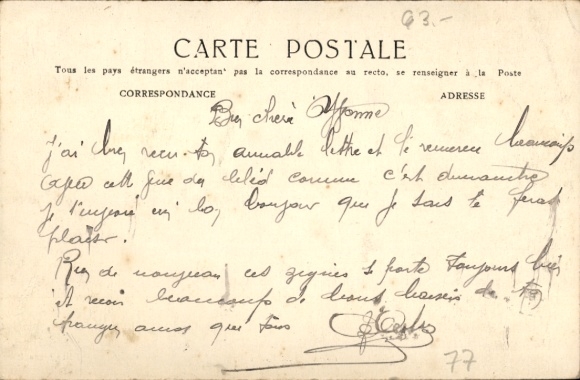 63.-
CARTE POSTALE
Tous les pays étrangers n'acceptant pas la correspondance au recto, se renseigner à la Poste
CORRESPONDANCE
ADRESSE
Bien chère Yvonne
J'ai bien reçu ta aimable lettre et te remercie beaucoup
cette vue du bled comme c'est dimanche
je t'envoie un bonjour que je sais te feras
plaisir.
Rien de nouveau ces se porte toujours bien
et reçoit beaucoup de bons baisers de ton
que tois
77